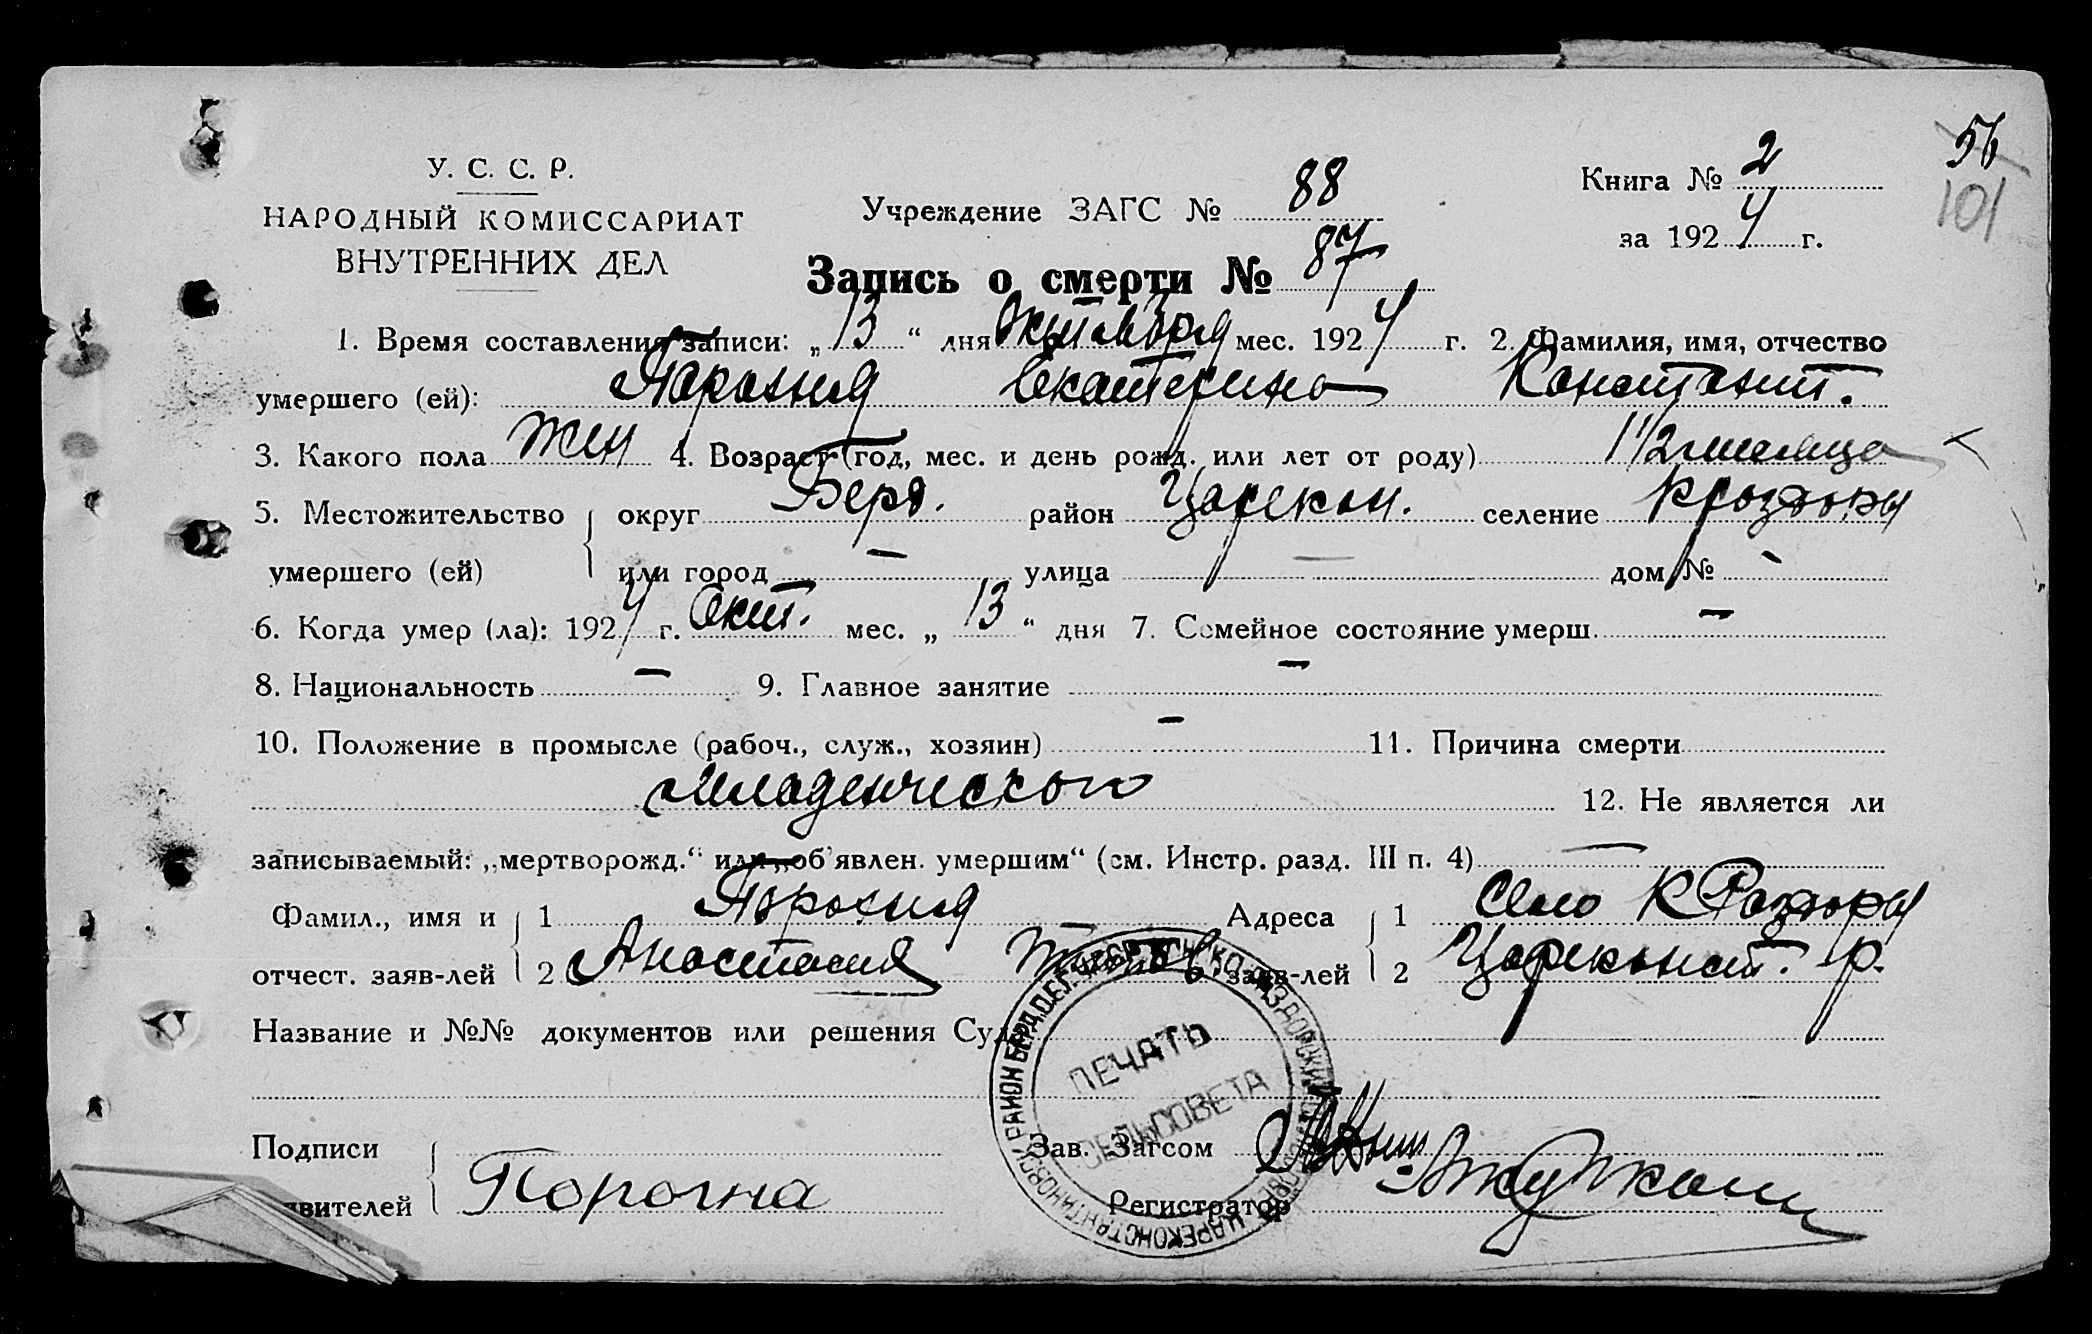 56
101
У. С. С. Р.
НАРОДНЫЙ КОМИССАРИАТ
ВНУТРЕННИХ ДЕЛ
Учреждение ЗАГС № 88
Книга № 2
за 1924 г.
Запись о смерти № 87
1. Время составления записи: „13“ дня Октября мес. 1924 г. 2. Фамилия, имя, отчество
умершего (ей): Екатерина Констант.
3. Какого пола Жен 4. Возраст (год, мес. и день рожд. или лет от роду) 1 1/2 месяца
5. Местожительство округ Берд. район Царекон. селение
умершего (ей) или город — улица — дом № -
6. Когда умер (ла): 1924 г. Окт. мес. „13“ дня 7. Семейное состояние умерш. —
8. Национальность — 9. Главное занятие —
10. Положение в промысле (рабоч., служ., хозяин) — 11. Причина смерти
Младенческого 12. Не является ли
записываемый: „мертворожд.“ или „об'явлен. умершим“ (см. Инстр. разд. III п. 4) —
Фамил., имя и 1 Адреса 1 Село К Раздоры
отчест. заяв-лей 2 Анастасия заяв-лей 2 Цареконст. р.
Название и №№ документов или решения Суда
Подписи Зав. Загсом
явителей Регистратор
ПЕЧАТЬ
СЕЛЬСОВЕТА